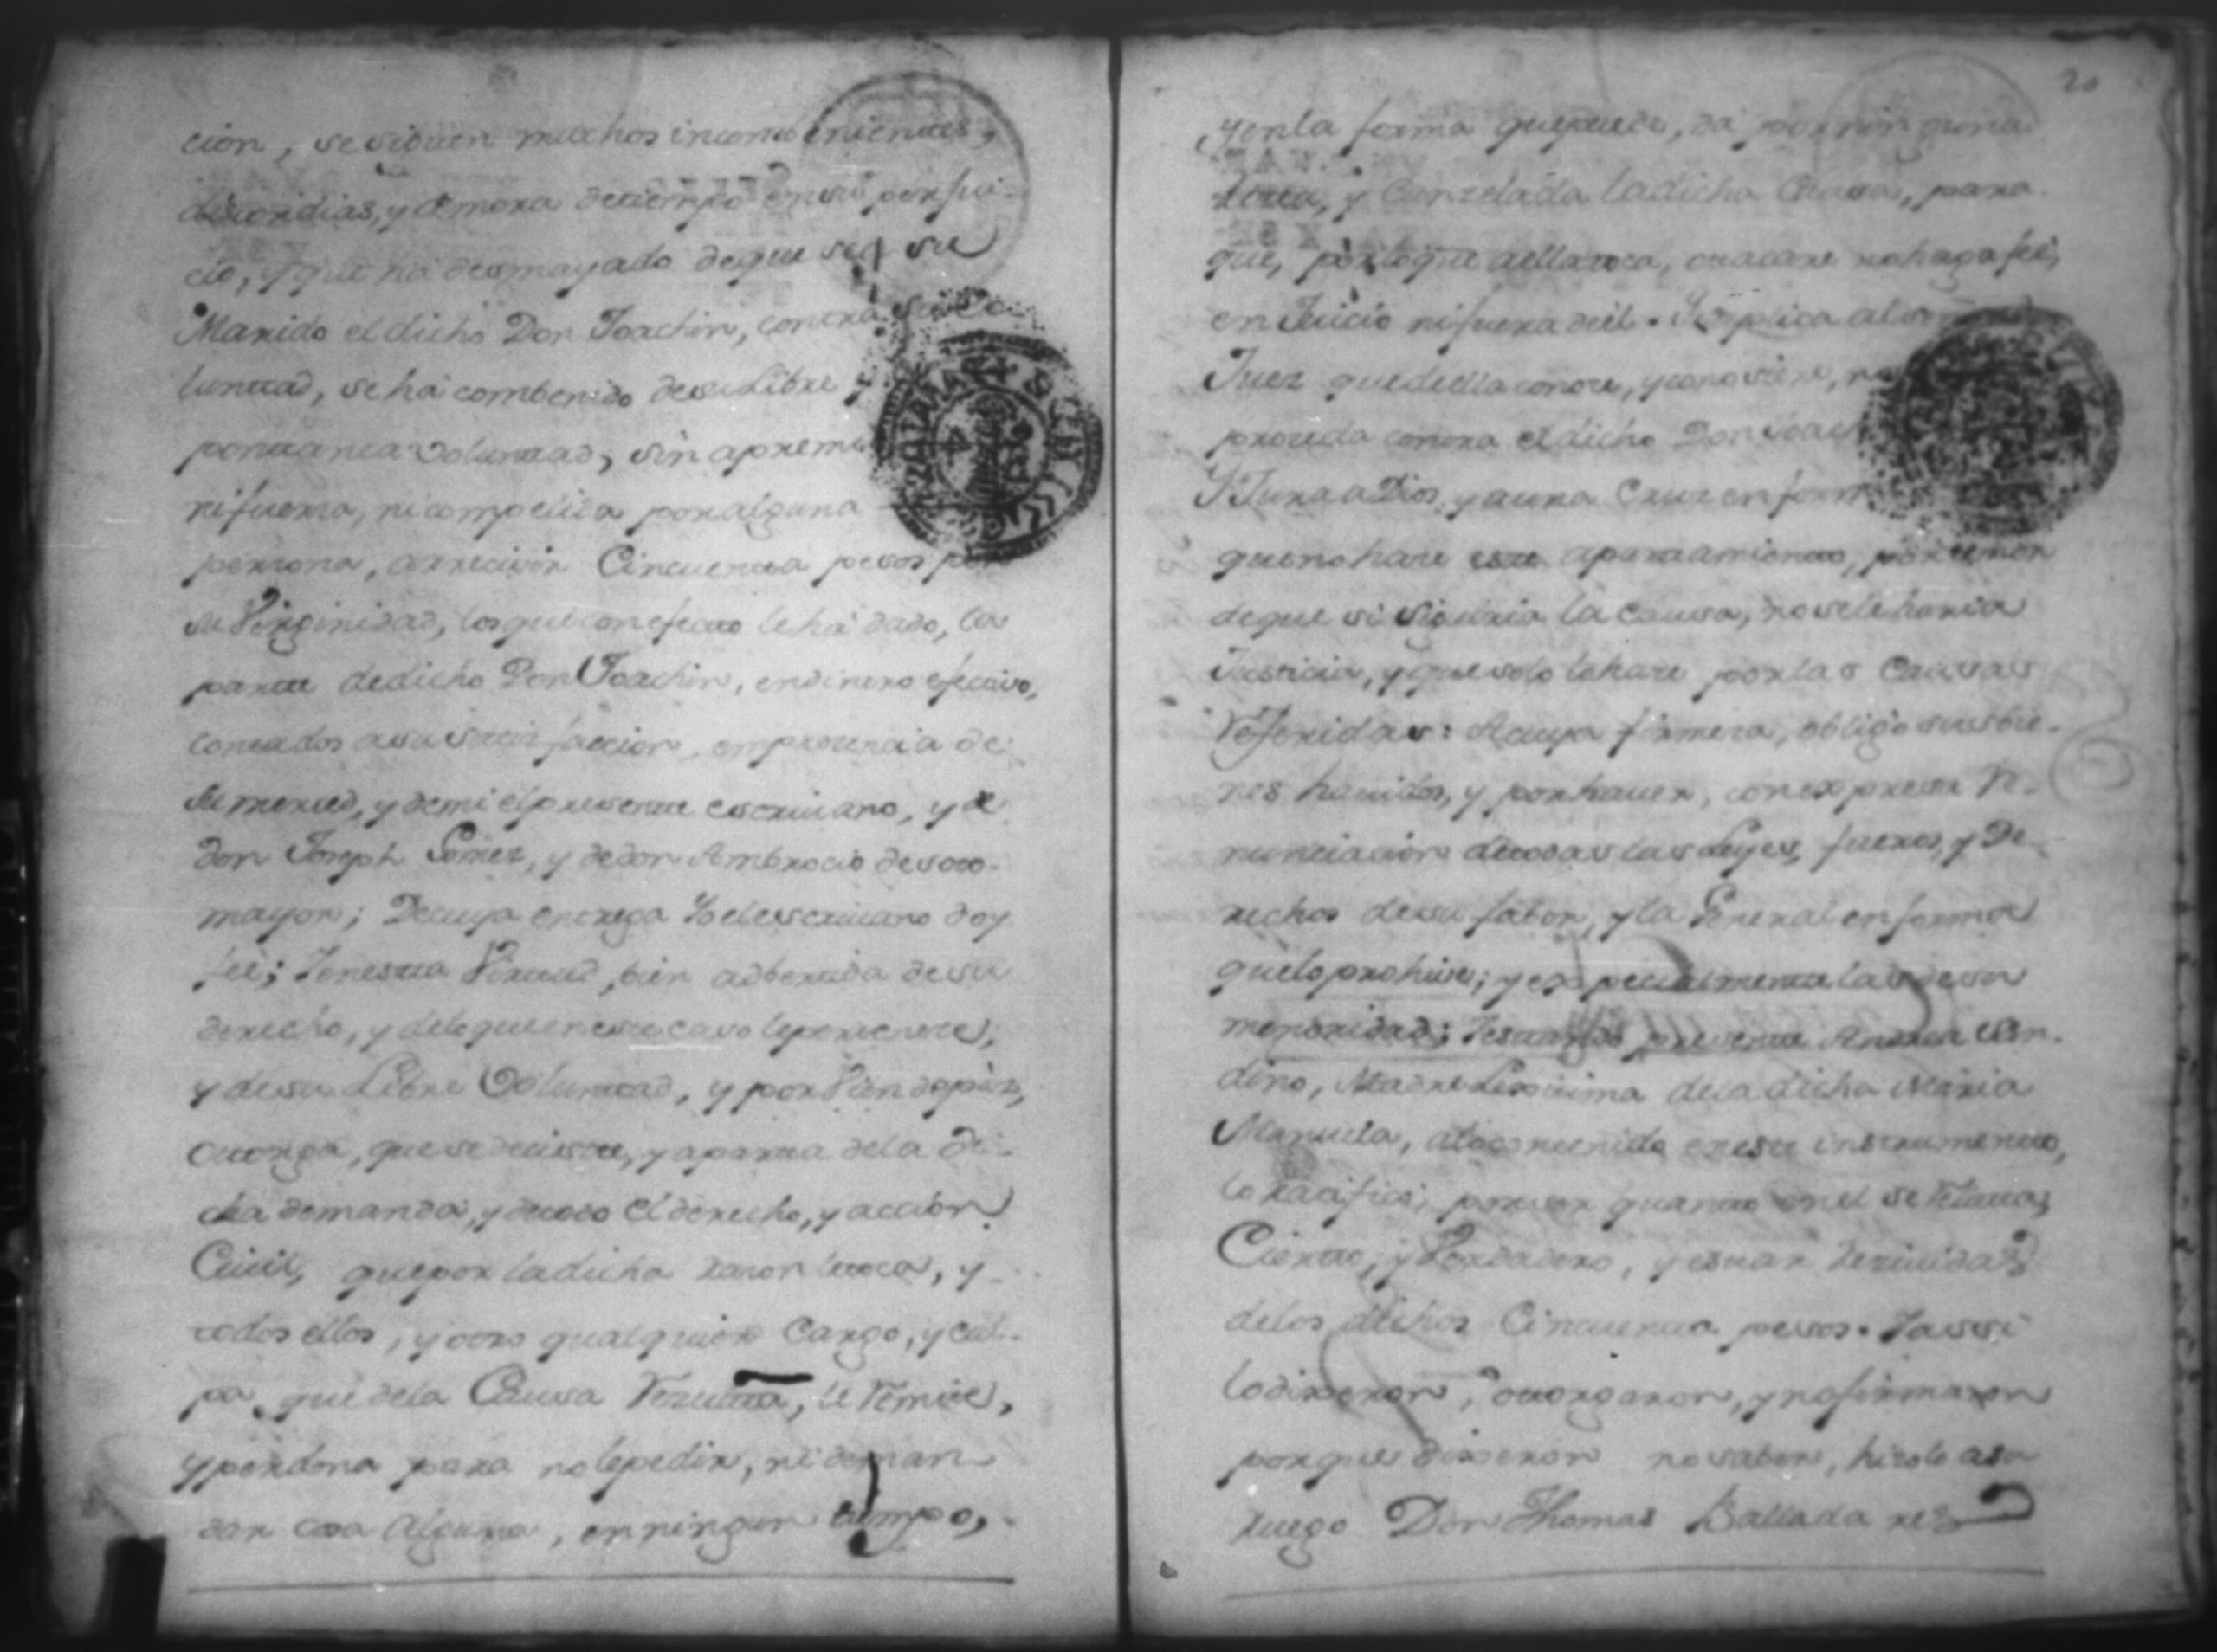 cion, se siguen muchos incombenientes,
discordias, y demora de tiempo en su perjui-
cio, y que há desmayado de que sea su
Marido el dicho Don Joachin, contra su vo
luntad, se há combenido de su Libre y
pontanea voluntad, sin apremi
ni fuerza, ni compelida por alguna
persona, arrecivir Cincuenta pesos por
su Virginidad, los que con efecto le há dado, la
parte de dicho Don Joachin, en dinero efectivo,
contados a su satisfaccion, em precencia de
su merced, y de mi el presente escrivano, y de
don Joseph Gomez, y de don Ambrocio de soto-
mayor; De cuya entrega Yo el escrivano doy
feé; Y en esta Virtud, bien adbertida de su
derecho, y de lo que en este caso le pertenece,
y de su Libre Voluntad, y por Vien de páz,
otorga, que se deciste, y aparta de la di-
cha demanda, y de todo el derecho, y acción
Civil, que por la dicha razon le toca, y
todos ellos, y otro qualquier Cargo, y cul-
pa, que de la Causa Rezulta, le Remite,
y perdona para no le pedir, ni deman
dar cosa Alguna, en ningun tiempo,
20
y en la forma que puede, dá por ninguna
y Canzelada la dicha Causa, para
que, por lo que a ella toca, no haga feé,
en Juicio ni fuera de él. Y suplica al
Juez que de ella conoce, y conociere, no
proceda contra el dicho Don Joach
Y Jura a Dios, y a una Cruz en form
que no hace este apartamiento, por temor
de que si siguiria la Causa, no se le haria
Justicia, y que solo lo hace por las Causas
Referidas: A cuya firmeza, obligó sus bie-
nes havidos, y por haver, con expresa Re-
nunciacion de todas las Leyes, fueros, y De-
rechos de su fabor, y la General en forma
que lo prohive; y especialmente las de su
menoridad; Y estando presente Andrea
dino, Madre Lexitima de la dicha Maria
Manuela, a lo contenido en este instrumento,
lo ratificó, por ser quanto en el se Relata,
Cierto, y Verdadero, y estar Rezividas
de los dichos Cincuenta pesos. Y assi
lo dixeron, otorgaron, y no firmaron
porque dixeron no saber, hizolo a su
ruego Don Thomas Ballada res